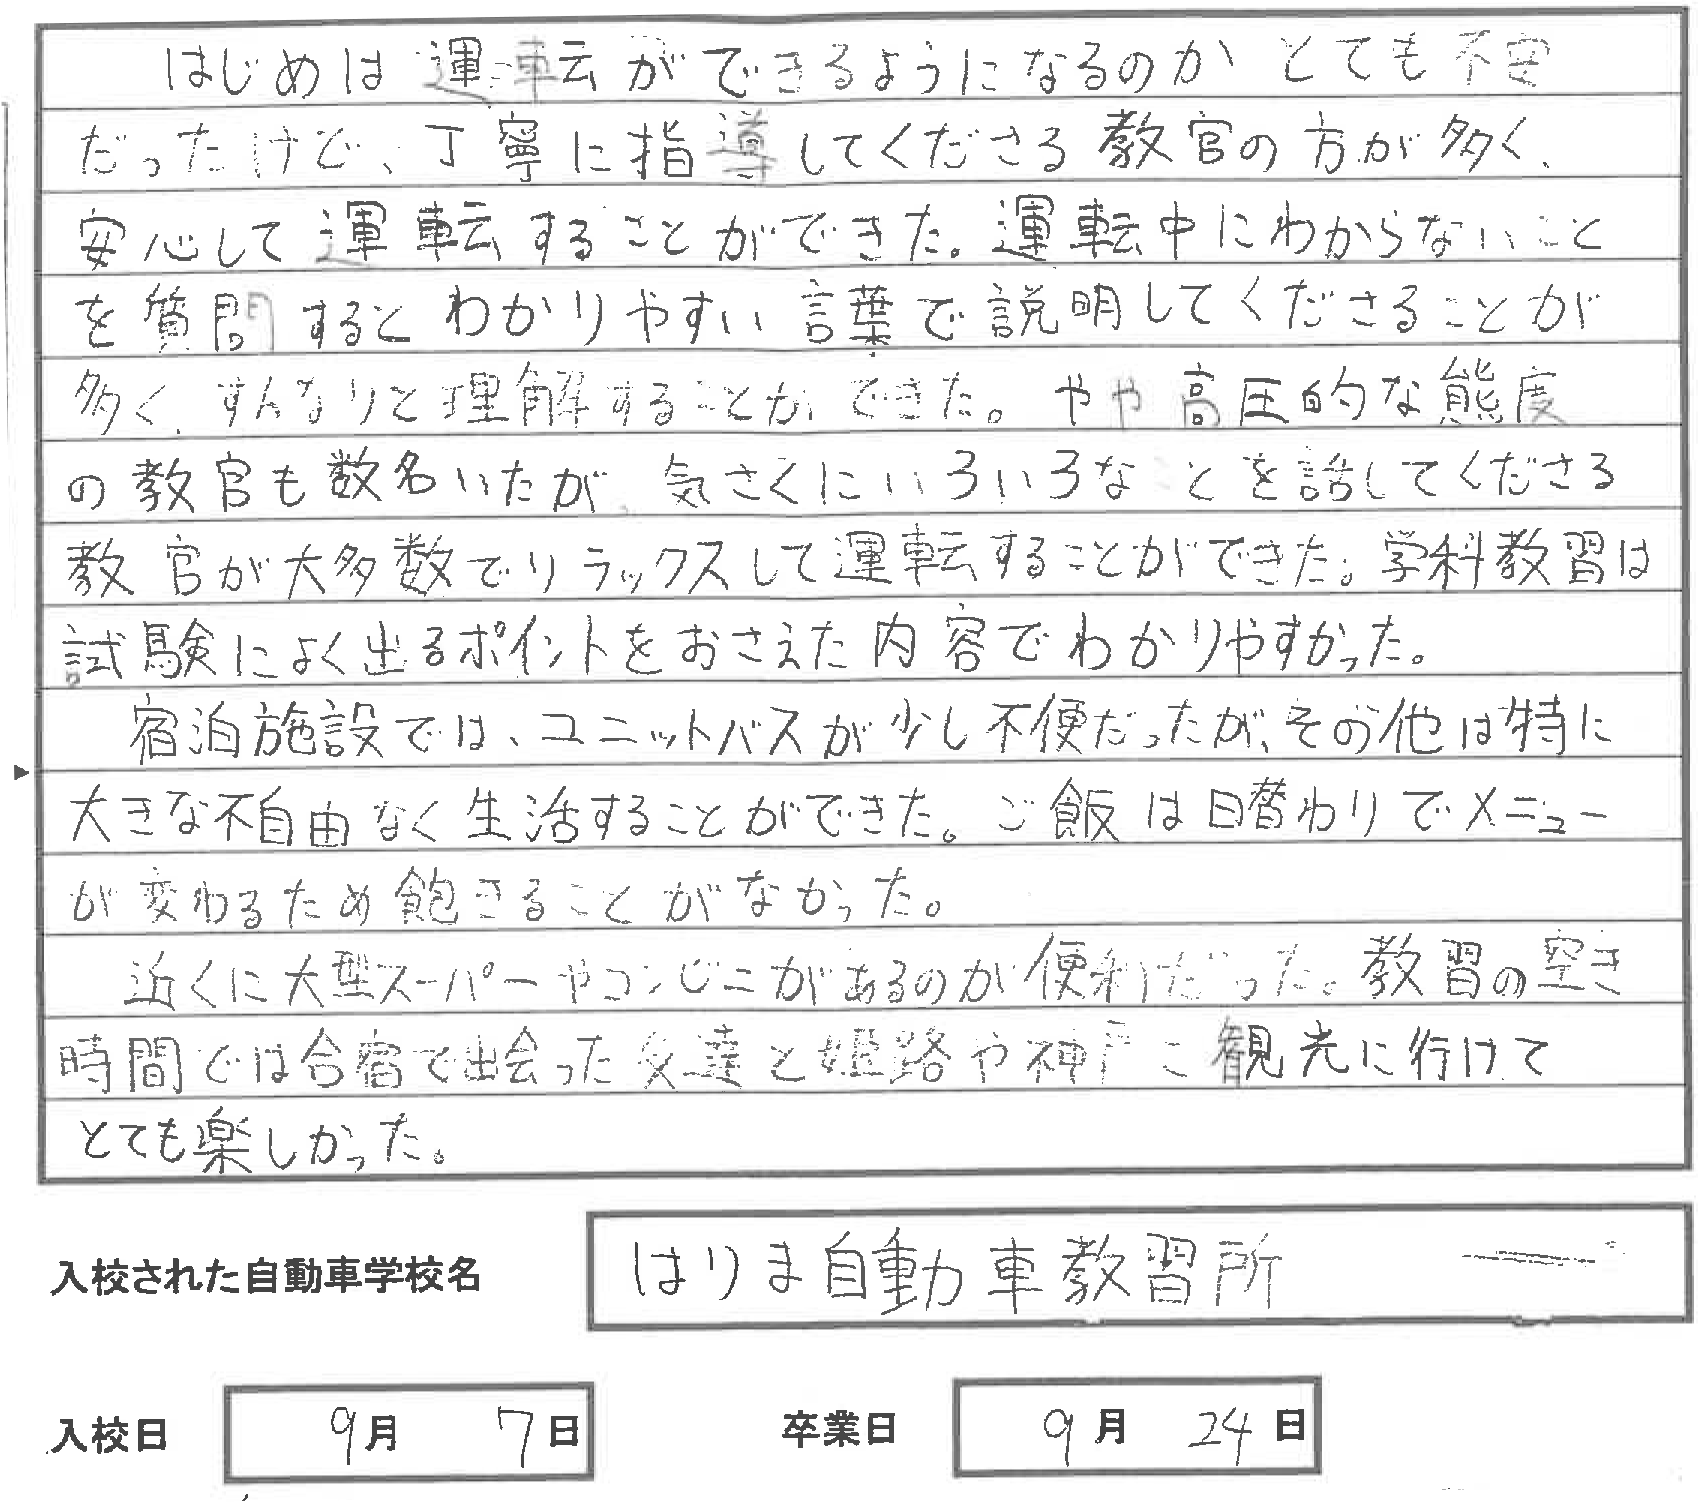 はじめは運転ができるようになるのかとても不安
だったけど、丁寧に指導してくださる教官の方が多く、
安心して運転することができた。運転中にわからないこと
を質問するとわかりやすい言葉で説明してくださることが
多く、すんなりと理解することができた。やや高圧的な態度
の教官も数名いたが、気さくにいろいろなことを話してくださる
教官が大多数でリラックスして運転することができた。学科教習は
試験によく出るポイントをおさえた内容でわかりやすかった。
宿泊施設では、ユニットバスが少し不便だったが、その他は特に
大きな不自由なく生活することができた。ご飯は日替わりでメニュー
が変わるため飽きることがなかった。
近くに大型スーパーやコンビニがあるのが便利だった。教習の空き
時間では合宿で出会った友達と姫路や神戸に観光に行けて
とても楽しかった。
入校された自動車学校名 はりま自動車教習所
入校日 9月 7日 卒業日 9月 24日